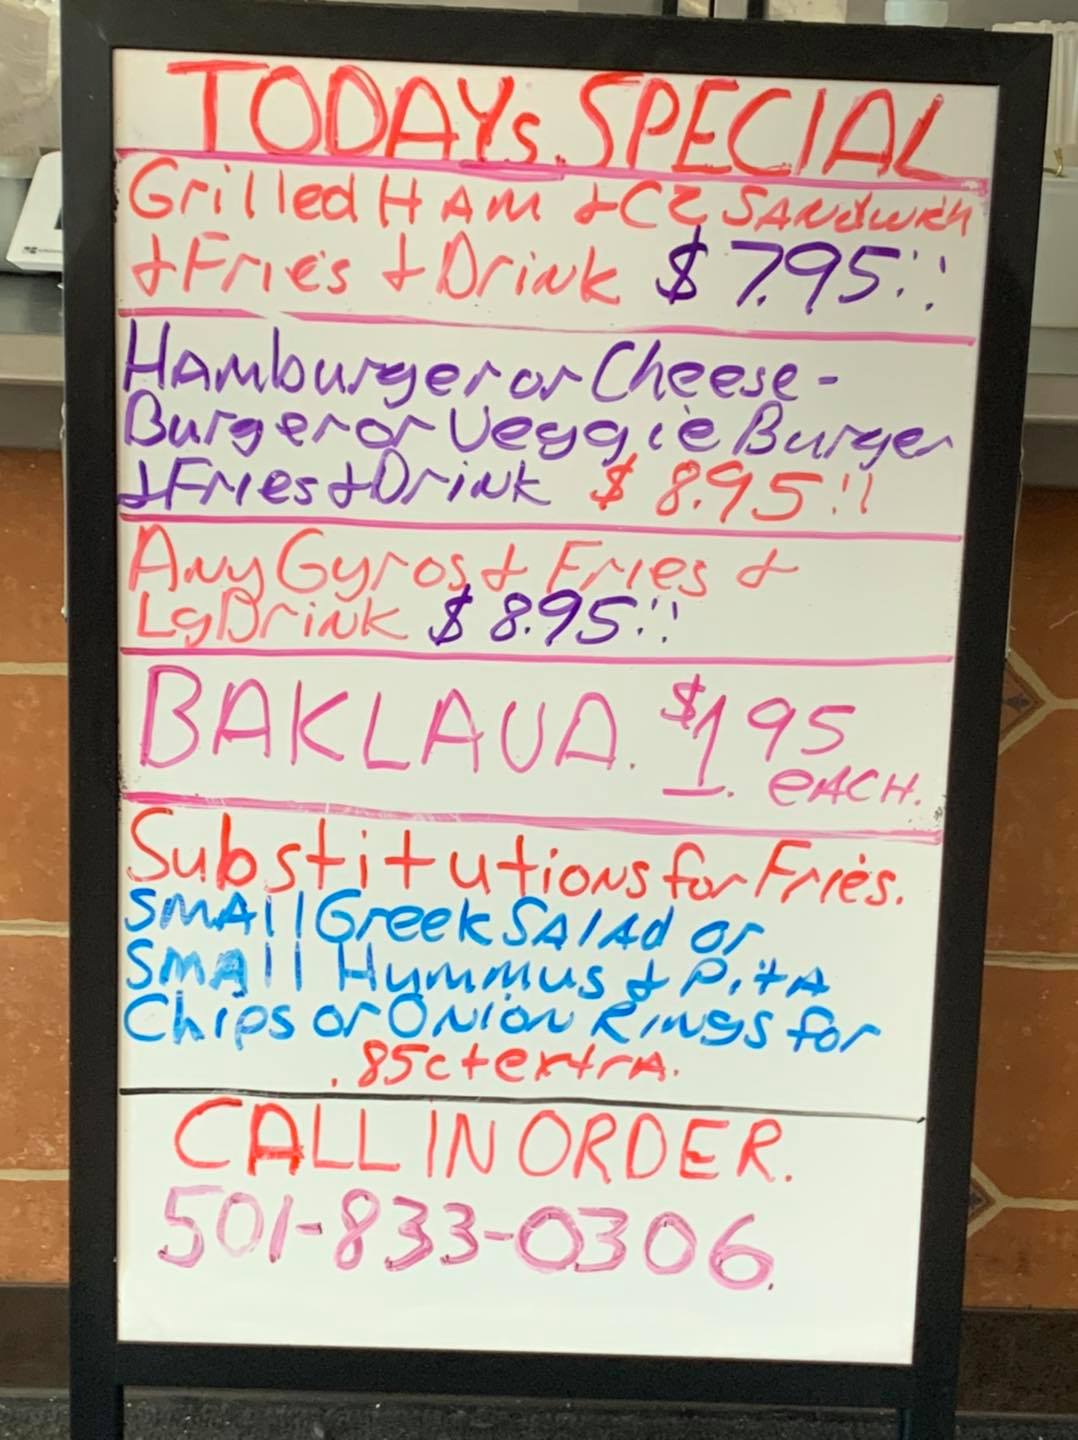 TODAYs. SPECIAL
Grilled HAM & CZ SANdwich
& Fries & Drink $7.95!!
HAmburger or Cheese-
Burger or Veggie Burger
& Fries & Drink $8.95!!
Any Gyros & Fries &
Lg Drink $8.95!!
BAKLAVA. $1.95
eACH.
Substitutions for Fries.
SMAll Greek SAlAd or
SMAll Hummus & PitA
Chips or Onion Rings for
.85ct extrA.
CALL IN ORDER.
501-833-0306.